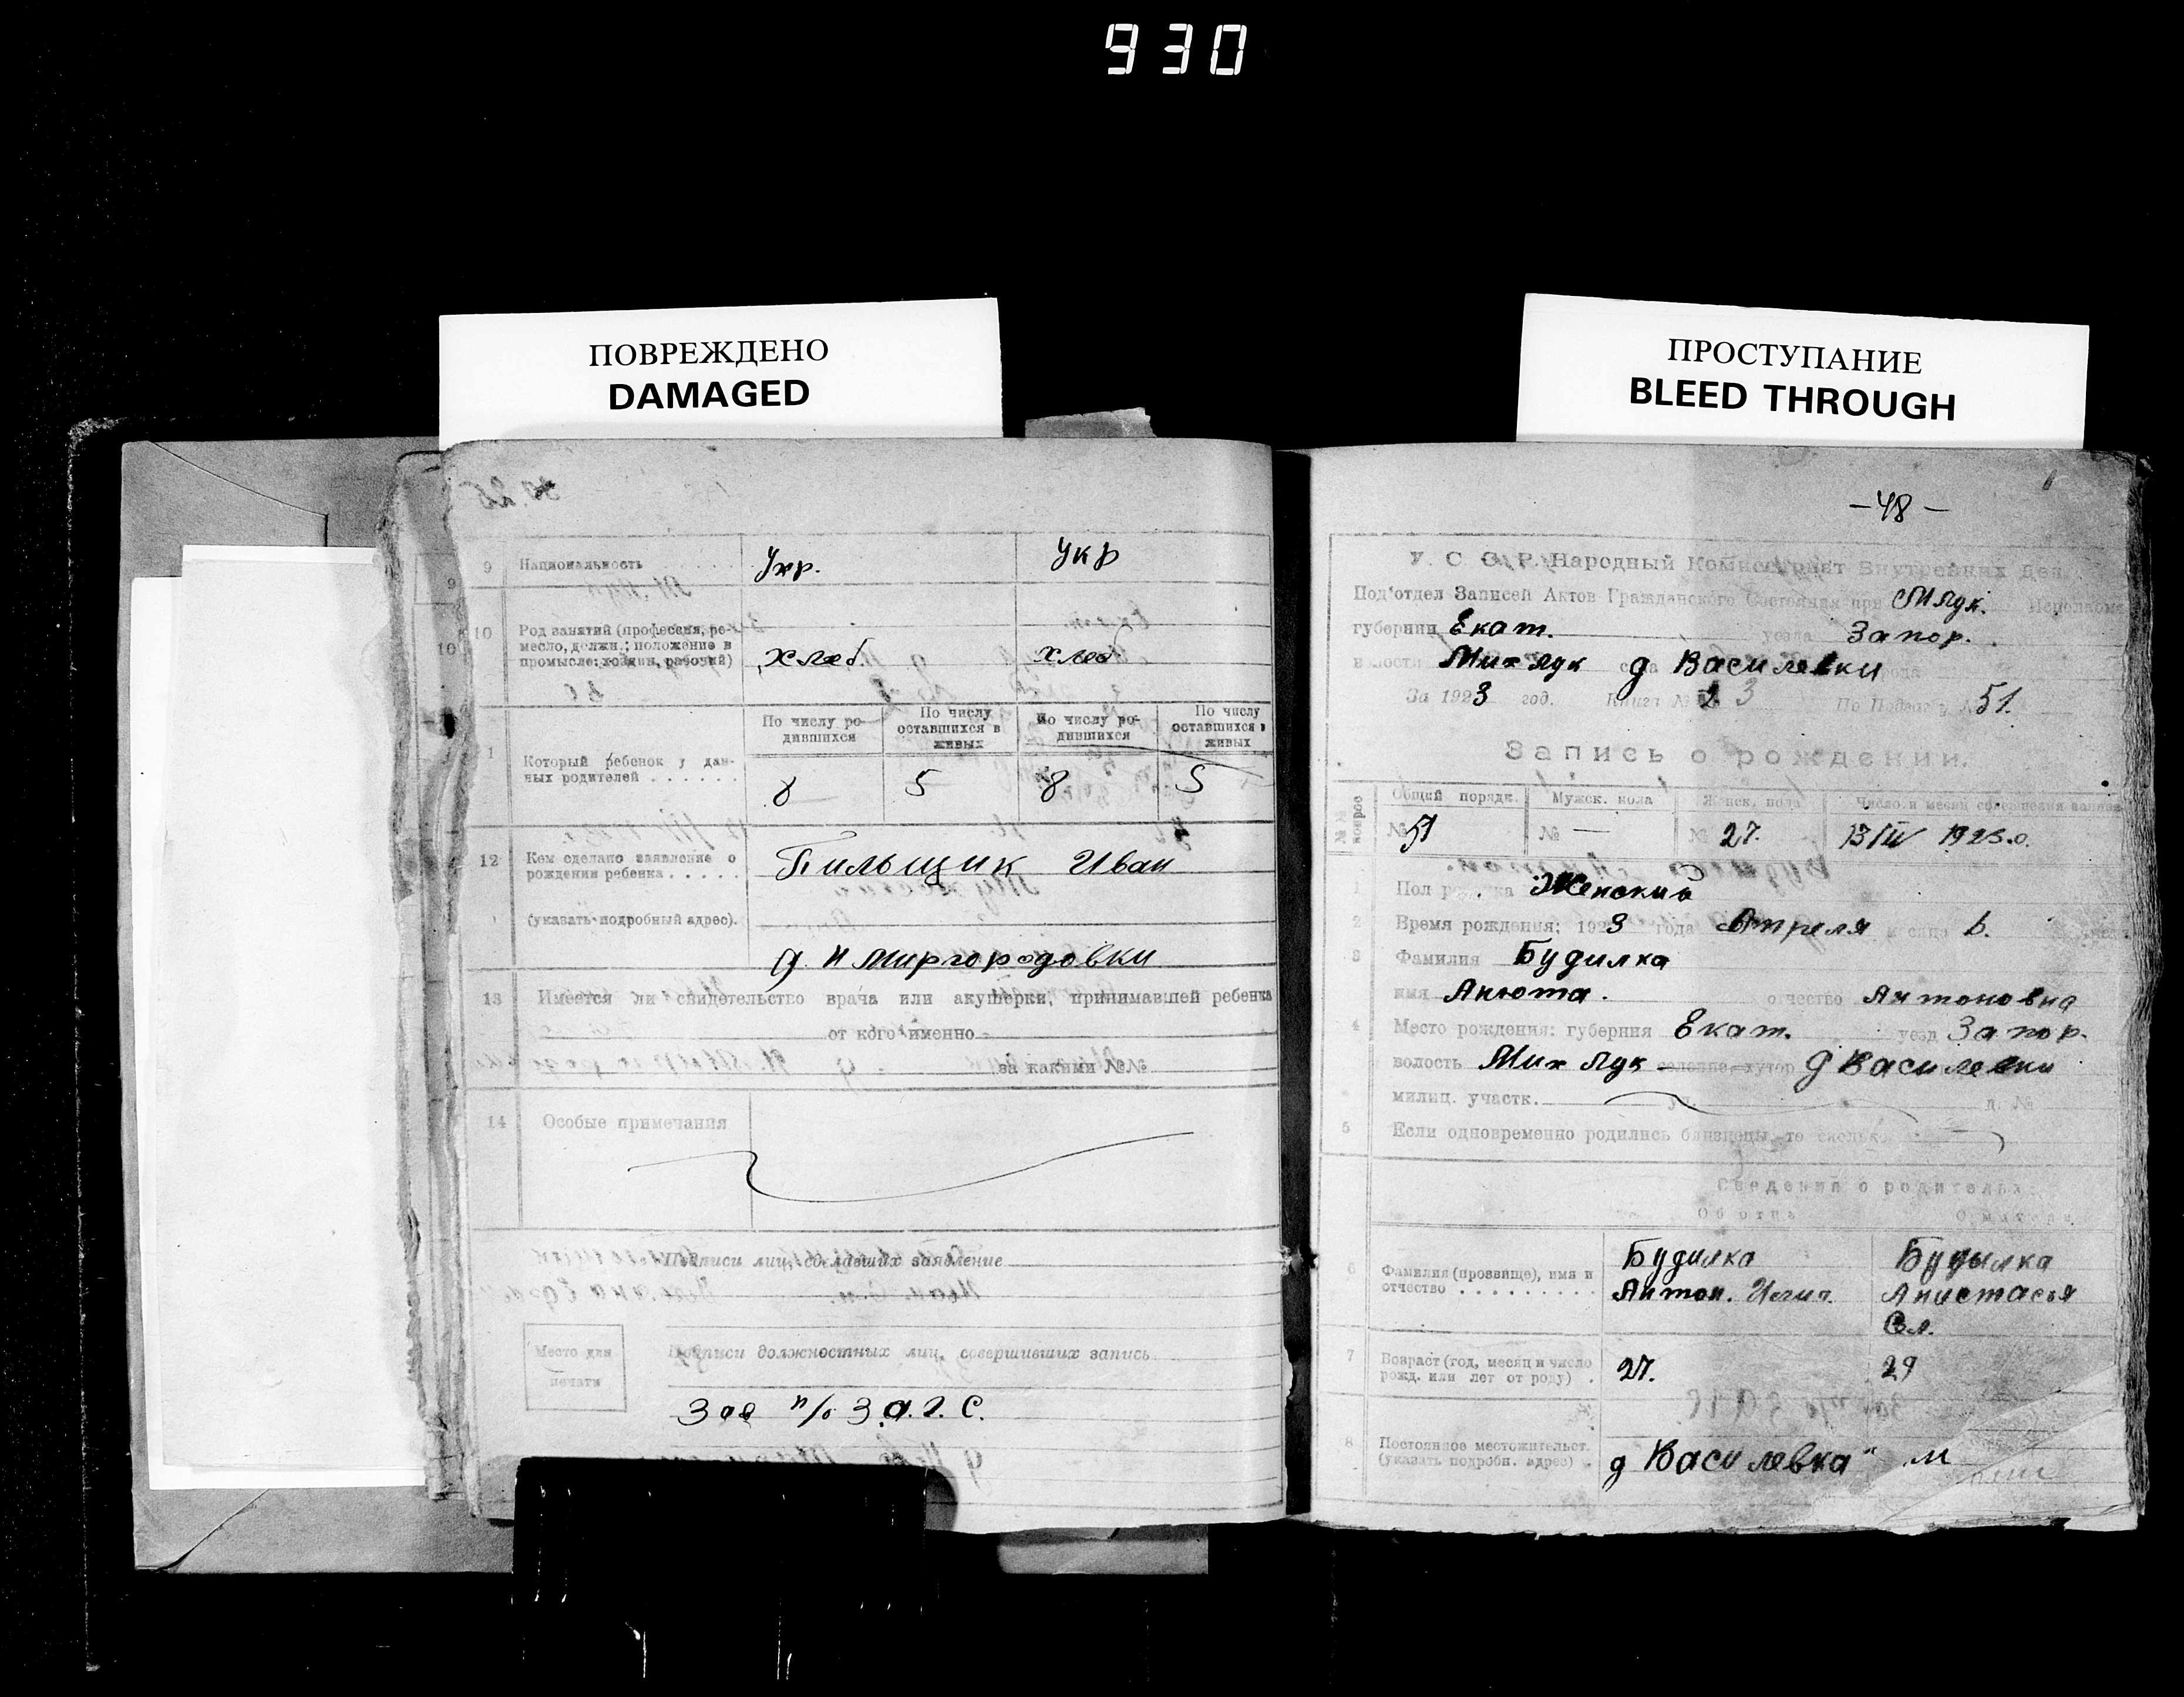 930
ПОВРЕЖДЕНО
DAMAGED
ПРОСТУПАНИЕ
BLEED THROUGH
9 Национальность Укр. Укр
10 Род занятий (профессия, ре-
месло, должн.; положение в
промысле: хозяин, рабочий) хлеб. хлеб
По числу ро-
дившихся
По числу
оставшихся в
живых
По числу ро-
дившихся
По числу
оставшихся в
живых
Который ребенок у дан-
ных родителей . . . . . .
8 5 8 5
12 Кем сделано заявление о
рождении ребенка . . . . .
Пильщик Иван
(указать подробный адрес).
д. Н Миргородовки
13 Имеется ли свидетельство врача или акушерки, принимавшей ребенка
от кого именно
за какими №№
14 Особые примечания
Подписи лиц, сделавших заявление
Место для
печати
Подписи должностных лиц, совершивших запись
Зав п/о З.А.Г.С.
— 48 —
У. С. С. Р. Народный Комиссариат Внутренних Дел
Под'отдел Записей Актов Гражданского Состояния при МЛук.
губернии Екат. уезда Запор.
волости Мих Лук села д Василевки
За 1923 год. Книга № 3 По 51.
Запись о рождении.
Общий порядк. Мужск. пола Женск. пола Число и месяц совершения записи
№ 51 № — № 27. 1923 г.
1 Пол ребенка Женский
2 Время рождения: 1923 года Апреля месяца 6.
3 Фамилия Будилка
имя Анюта. отчество Антоновна
4 Место рождения: губерния Екат. уезд Запор.
волость Мих Лук селение-хутор д Василевки
милиц. участк. ул. д. №
5 Если одновременно родились близнецы, то сколько
Сведения о родителях:
Об отце О матери
6 Фамилия (прозвище), имя и
отчество . . . . . . . . .
Будилка Будылка
Антон. Анистасья
7 Возраст (год, месяц и число
рожд. или лет от роду) . 27. 29
8 Постоянное местожительст.
(указать подробн. адрес) .
д Василевка